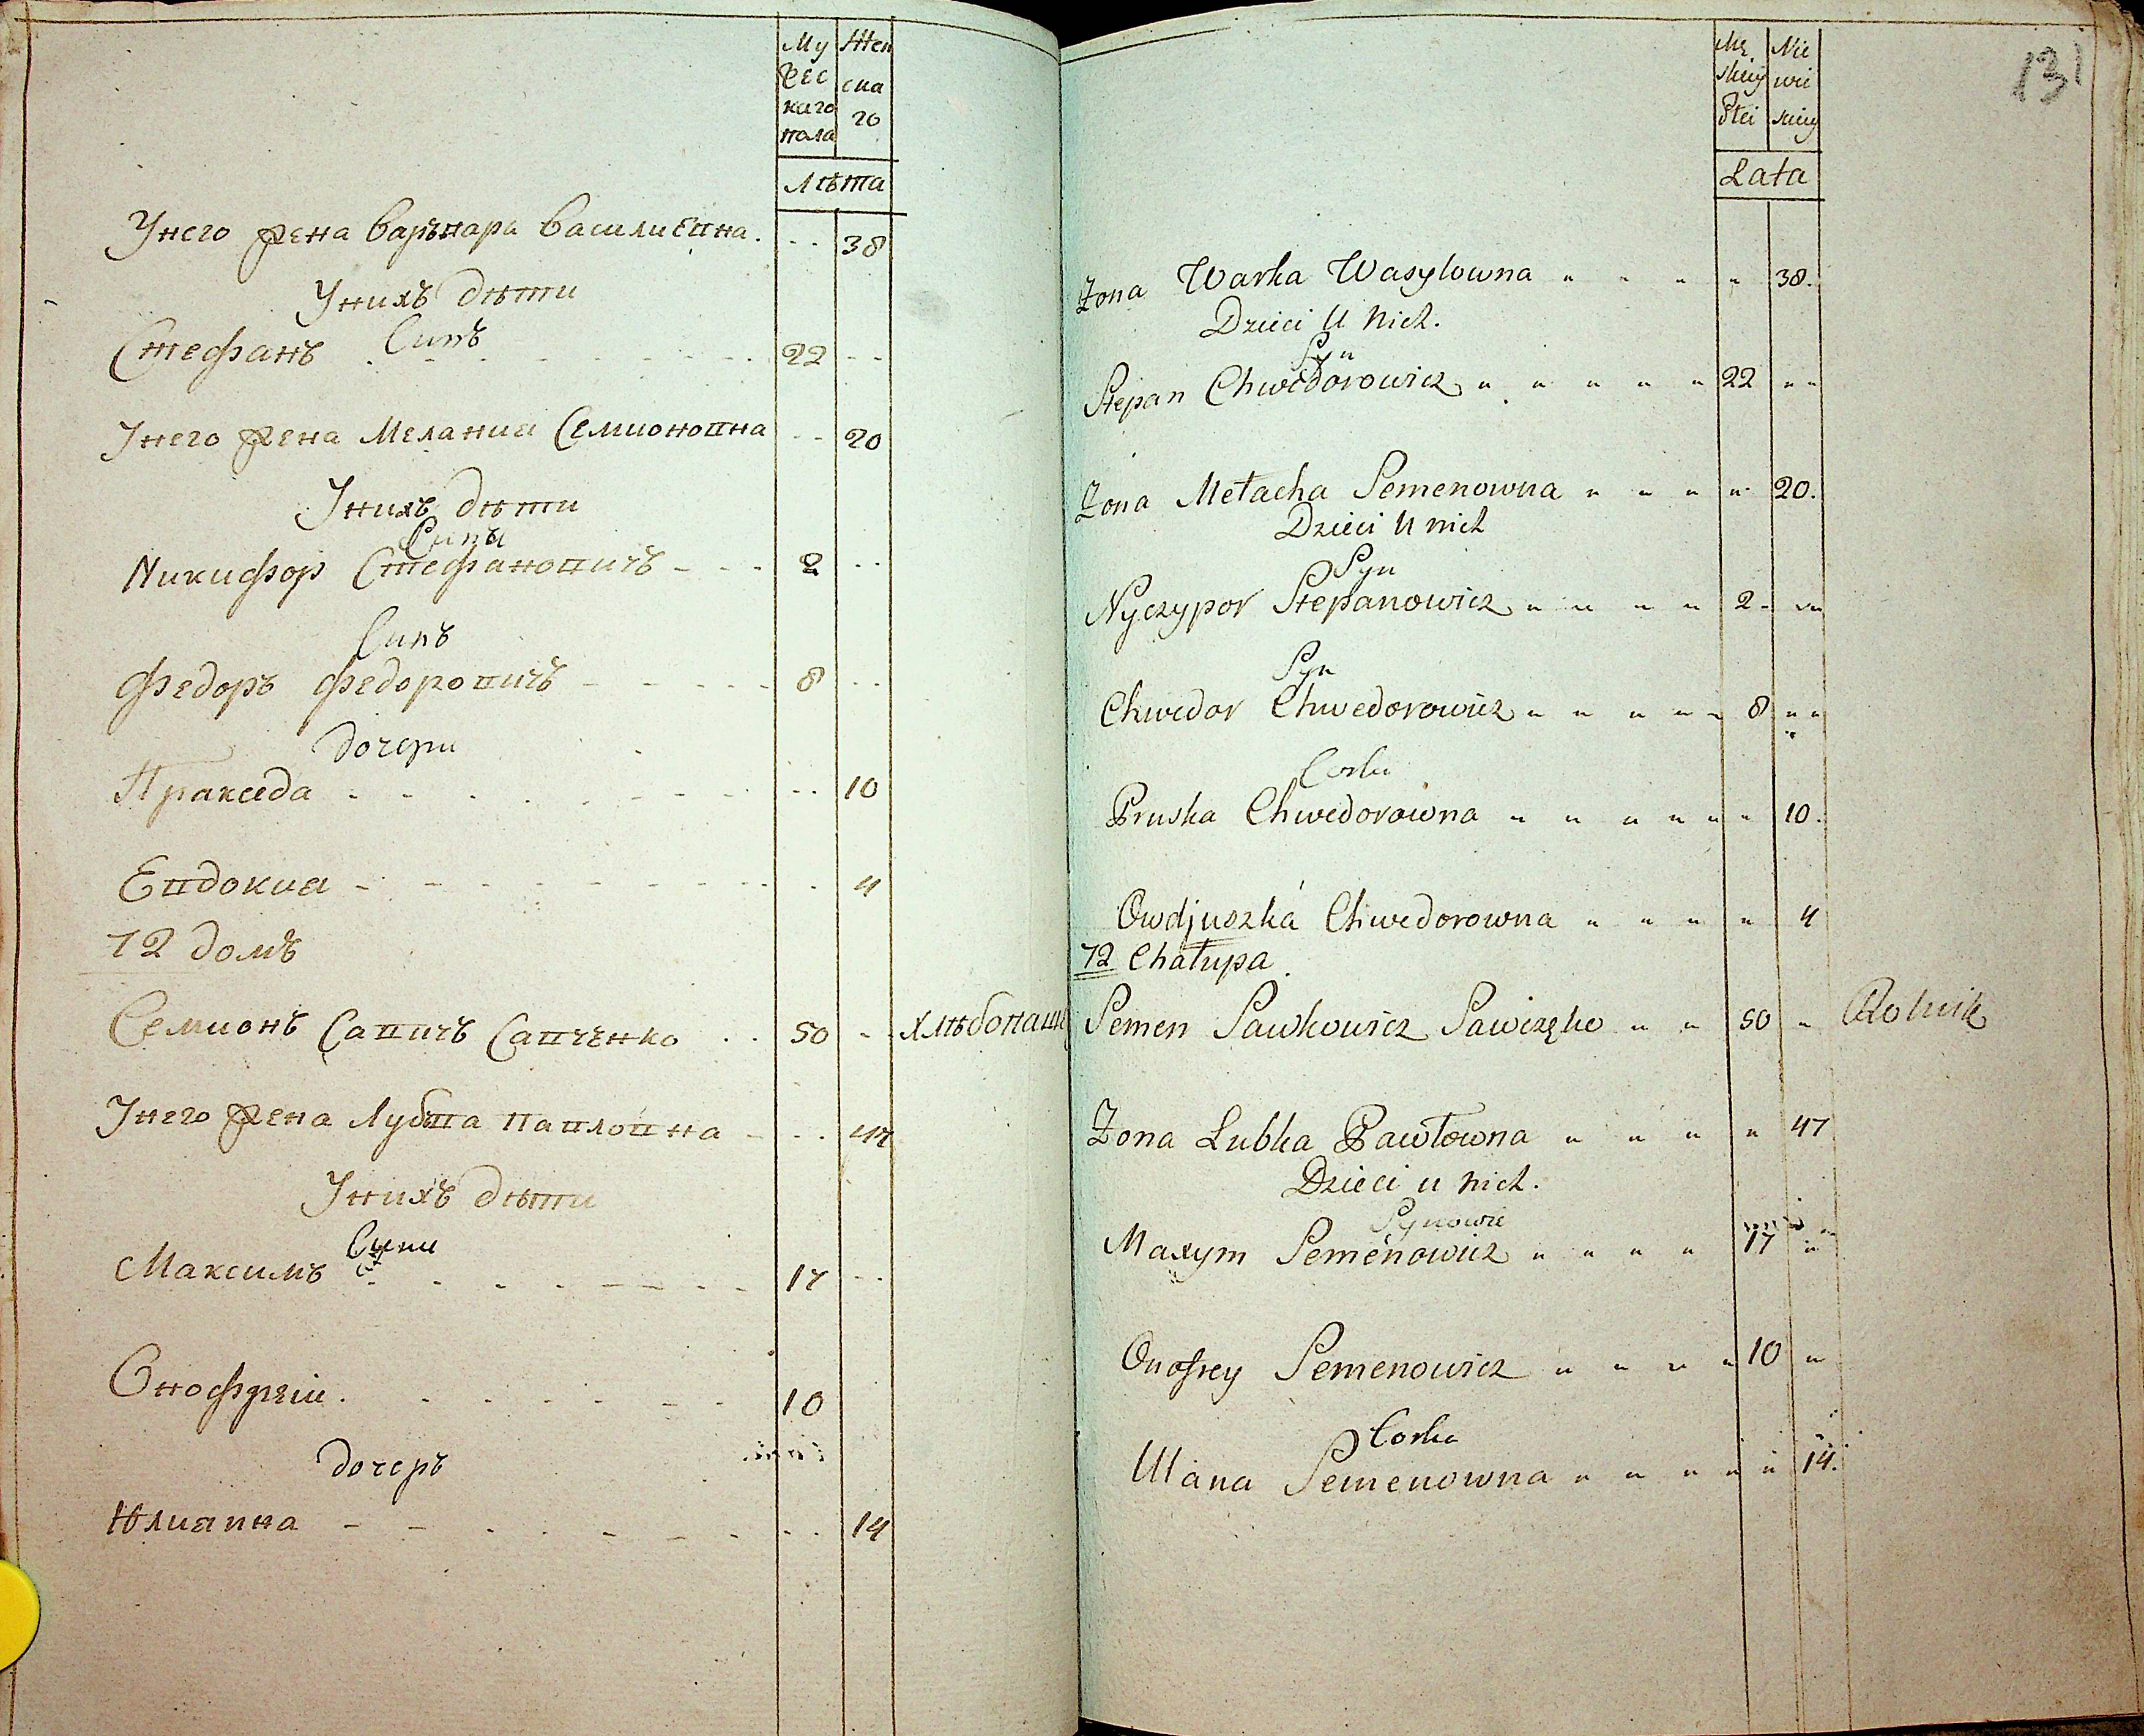 Му
жес
каго
пола
Жен
ска
го
Лѣта
Унего жена Варъвара Василиевна. 38
Унихъ дѣти
Синъ
Стефанъ 22
Унего жена Мелания Семионовна 20
Унихъ дѣти
Синъ
Никифор Стефановичъ 2
Синъ
Федоръ Федоровичъ 8
дочери
Пракседа 10
Евдокия 4
72 домъ
Семионъ Савичъ Савченко 50 хлѣбопашец
Унего жена Лубва Павловна 47
Унихъ дѣти
Сини
Максимъ 17
Онофрей 10
дочеръ
Юлиянна 14
131
Mę
skiey
Płci
Nie
wie
skiey
Lata
Zona Warka Wasylowna 38.
Dzieci U Nich.
Syn
Stepan Chwedorowicz 22
Zona Mełacha Semenowna 20.
Dzieci U nich
Syn
Nyczypor Stepanowicz 2
Syn
Chwedor Chwedorowicz 8
Corka
Pruska Chwedorowna 10.
Owdjuszka Chwedorowna 4
72 Chałupa
Semen Sawkowicz Sawczęko 50 Rolnik
Zona Lubka Pawłowna 47
Dzieci u nich.
Synowie
Maxym Semenowicz 17
Onofrey Semenowicz 10
Corka
Ulana Semenowna 14.